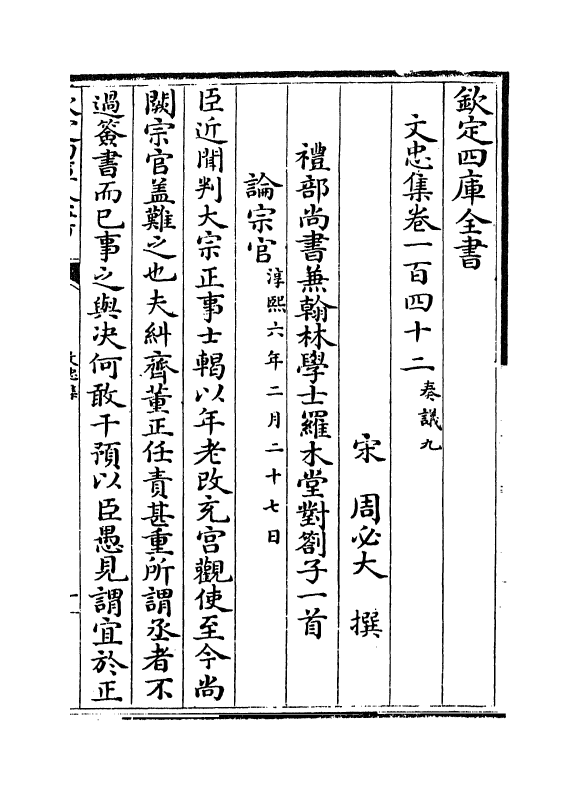 欽定四庫全書
文忠集卷一百四十二 奏議九
宋 周必大 撰
禮部尚書兼翰林學士羅木堂對劄子一首
論宗官 淳熙六年二月二十七日
臣近聞判大宗正事士輵以年老改充宮觀使至今尚
闕宗官盖難之也夫糾齊董正任責甚重所謂丞者不
過簽書而已事之與决何敢干預以臣愚見謂宜於正